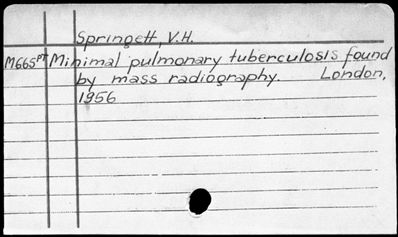 Springett, V.H.
M665PT Minimal pulmonary tuberculosis found
by mass radiography. London,
1956